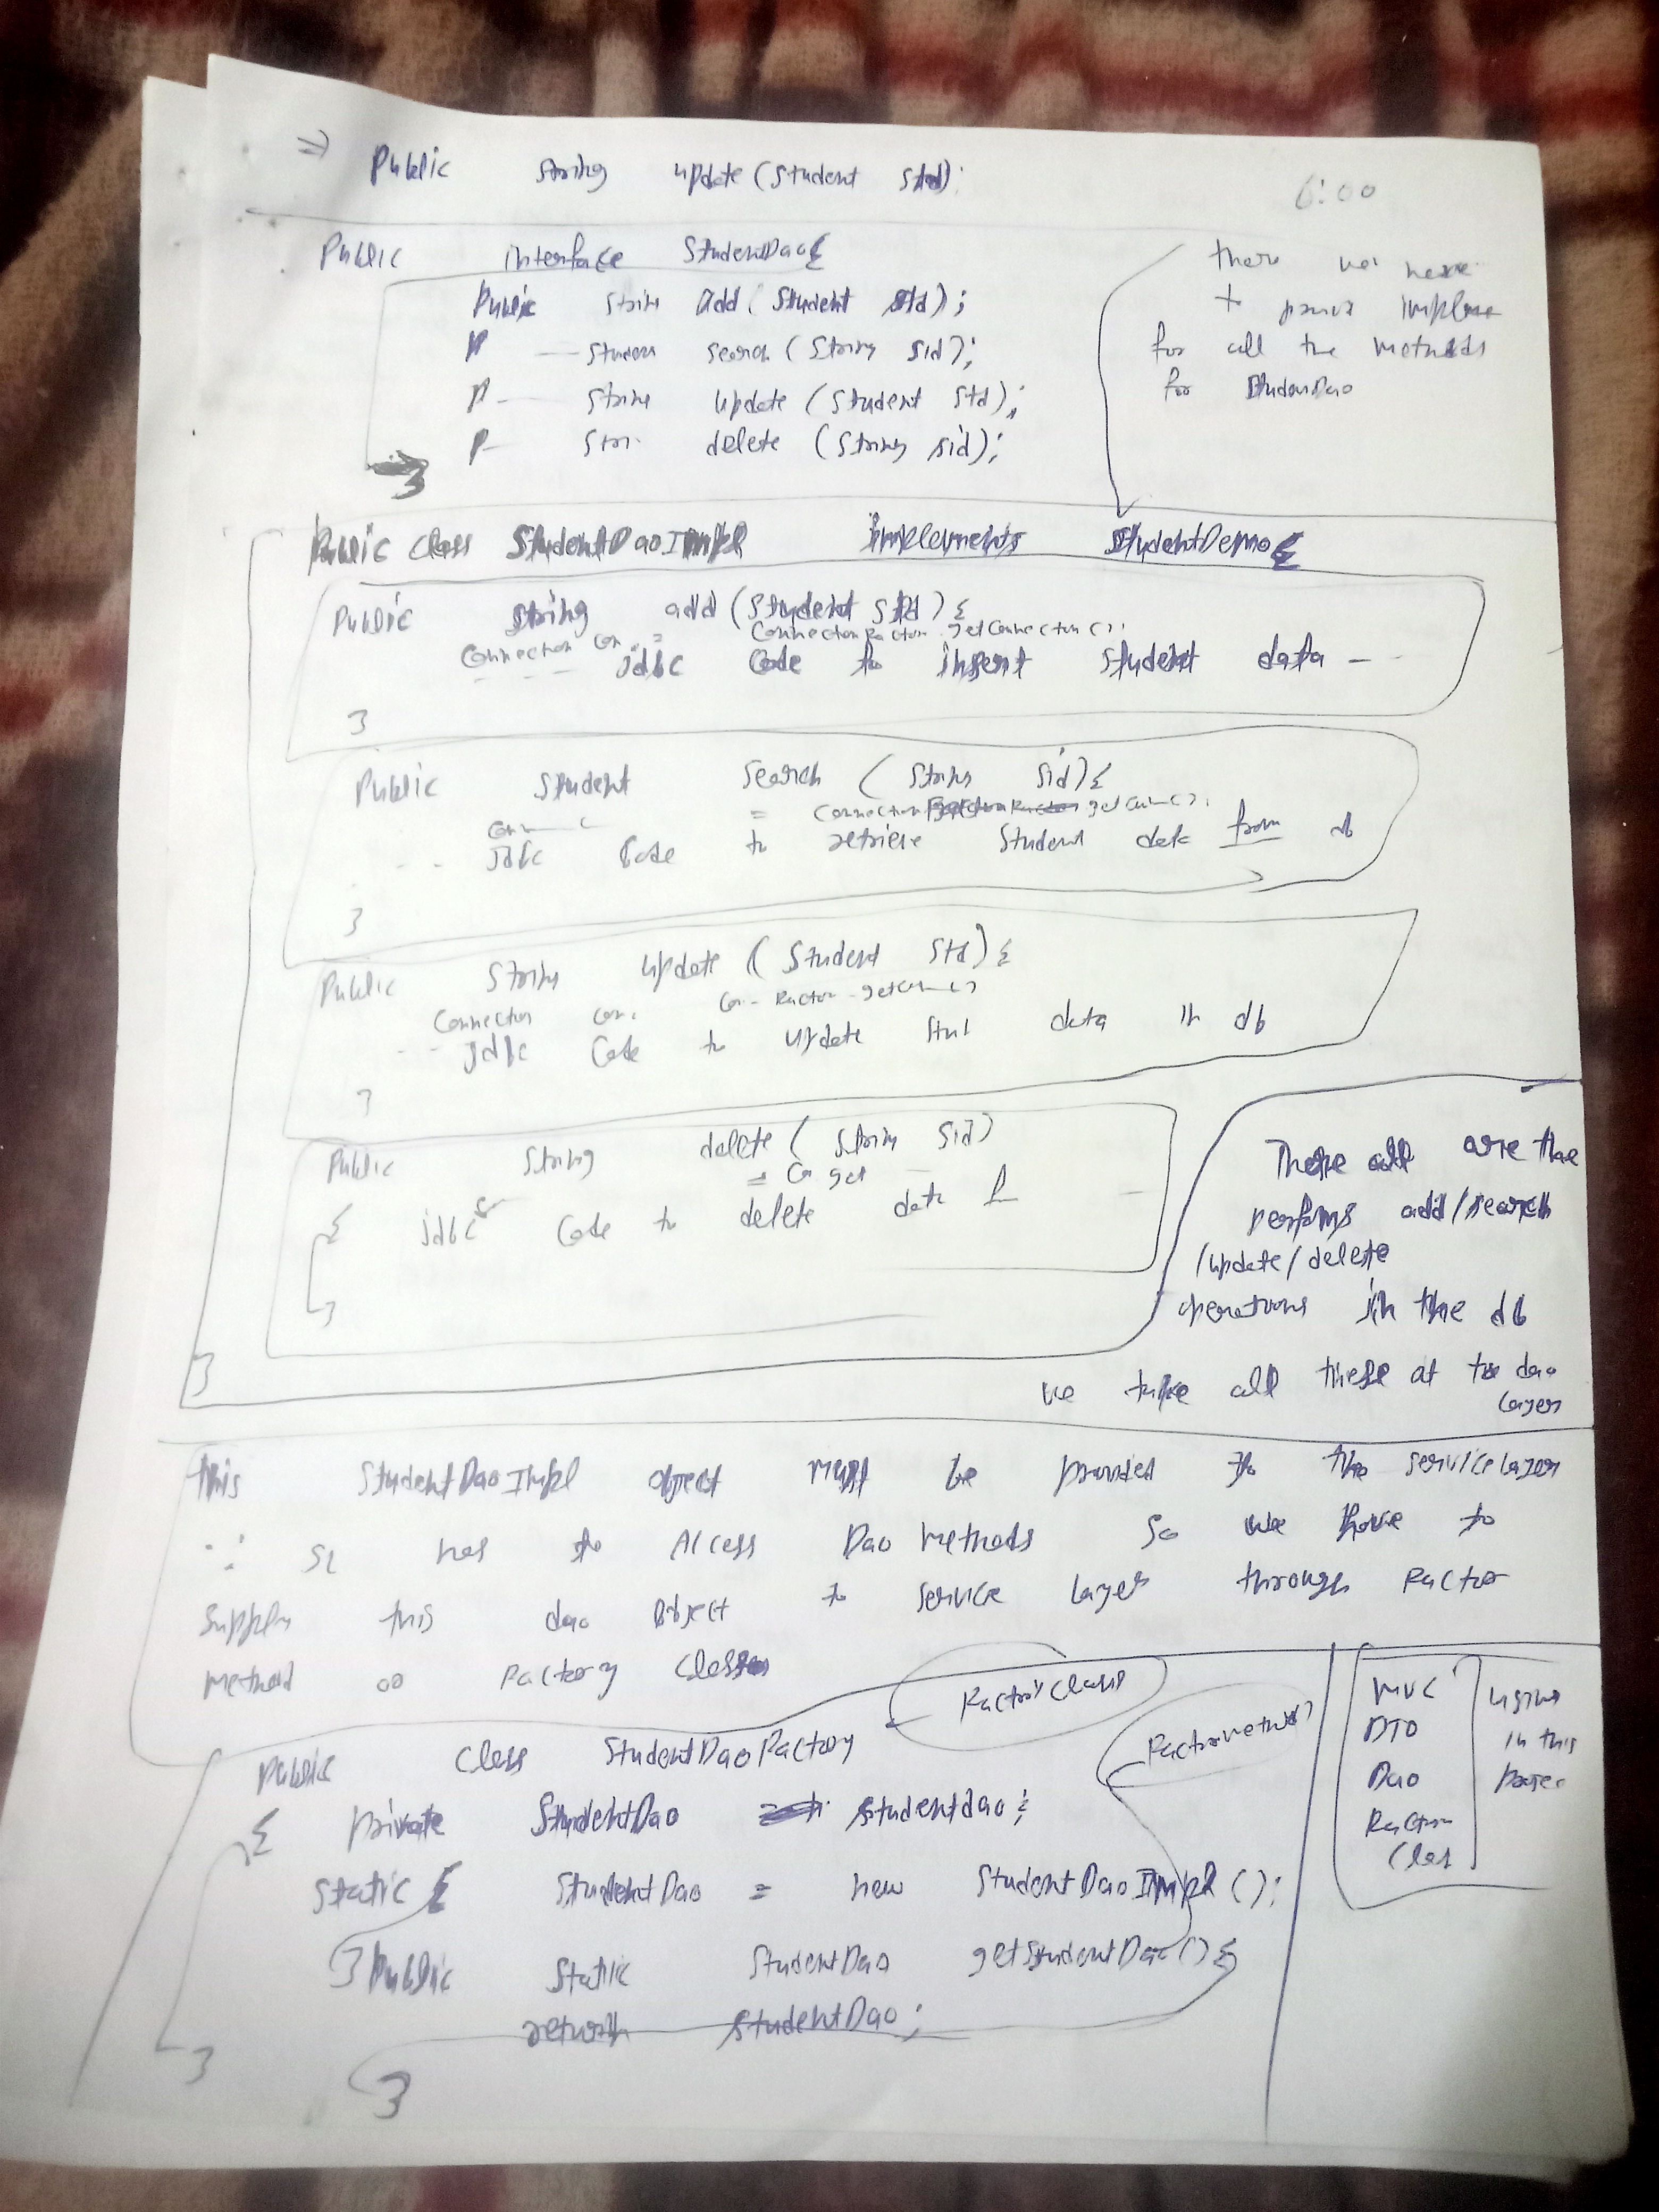 => Public String update(Student std);
6:00
Public interface StudentDao{
Public String add(Student std);
P — Student search(String sid);
P — String update(Student std);
P — Stri delete(String sid);
3
there we have
to implem
for all the methods
for StudentDao
Public class StudentDaoImpl implements StudentDemo{
Public String add(Student std){
Connection con = ConnectionFactory.getConnection();
--- jdbc code to insert student data --
3
Public Student search (String sid){
Con = Connection getConn();
-- jdbc code to retrieve student data from db
3
Public String update (Student std){
Connection con. Con- Factor-getConn()
-- jdbc code to update stud data in db
3
Public String delete (String sid)
= Co get
{ jdbc code to delete data f —
3
3
These all are the
performs add/search
/update/delete
operations in the db
we take all these at the dao
layer
this StudentDaoImpl object must be provided to the service layer
∵ SL has to Access Dao methods so we have to
supply this dao object to service layer through Factor
method or Factory class
Factory class
Factory method
Public class StudentDaoFactory
{ private StudentDao studentdao;
static { StudentDao = new StudentDaoImpl();
3 Public static StudentDao getStudentDao(){
return studentDao;
3
3
MVC
DTO
Dao
Factory
Class
using
in this